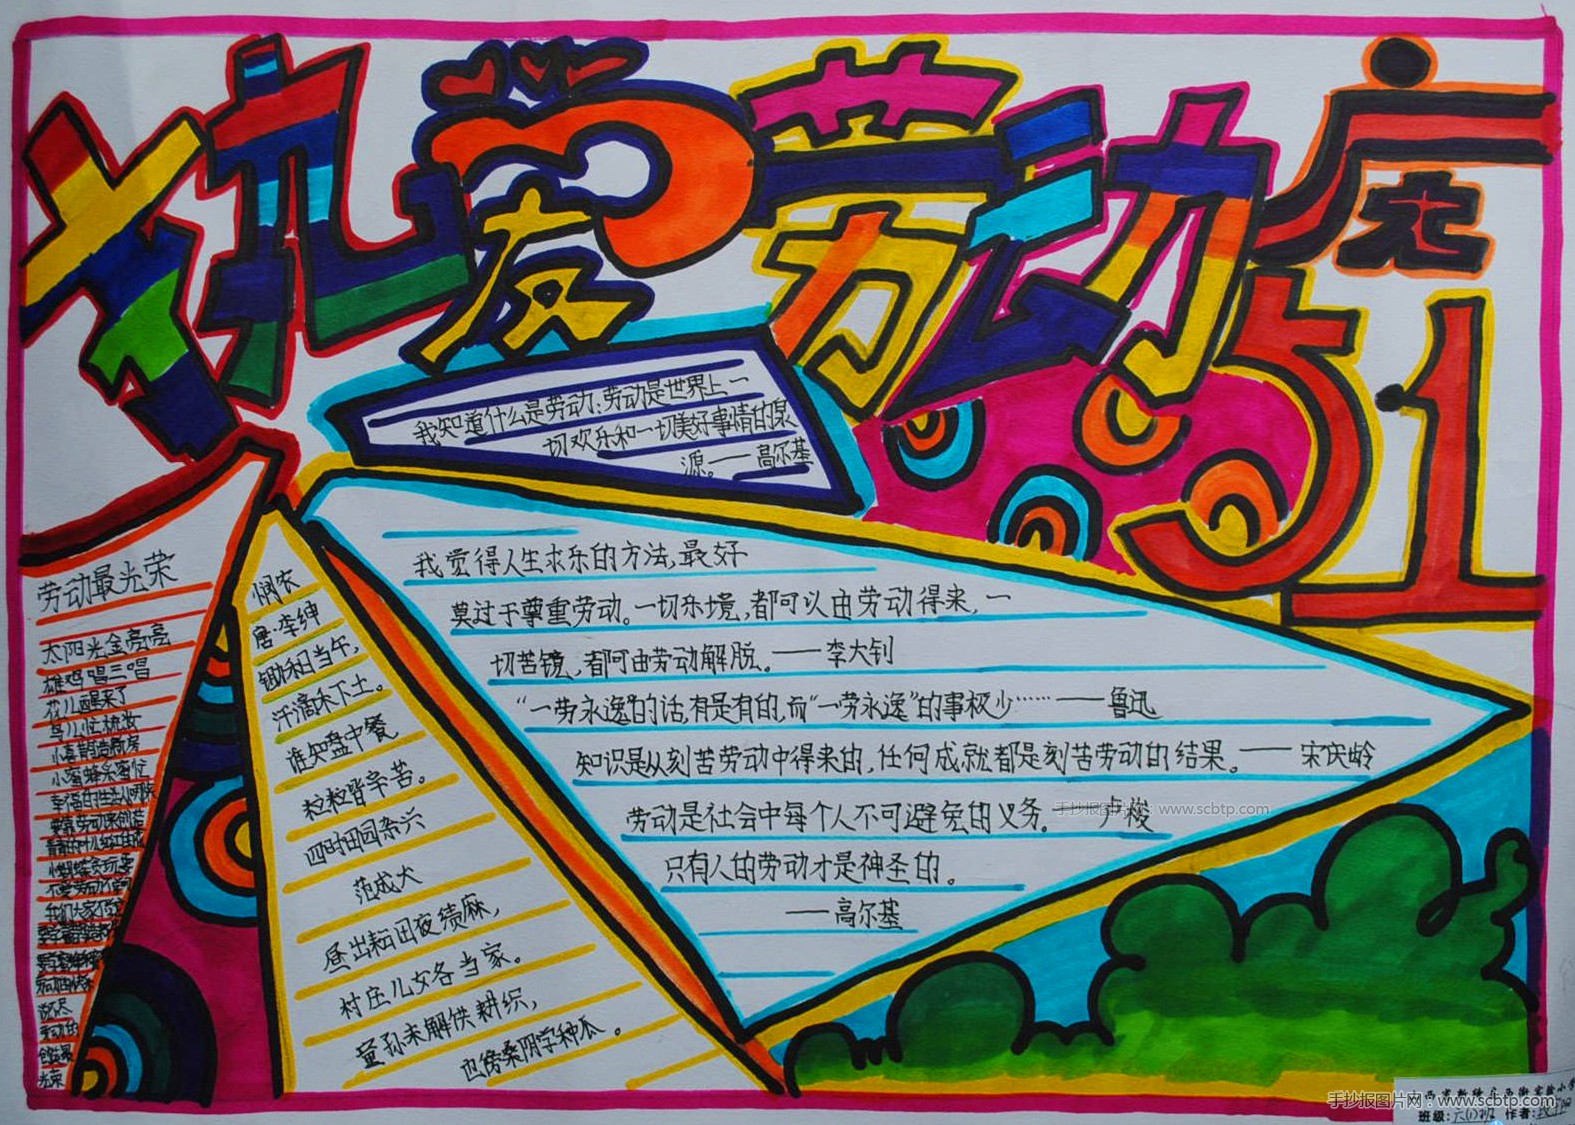 热爱劳动
庆
51
我知道什么是劳动:劳动是世界上一
切欢乐和一切美好事情的泉
源。——高尔基
劳动最光荣
太阳光金亮亮
雄鸡唱三唱
花儿醒来了
鸟儿忙梳妆
小喜鹊造新房
小蜜蜂采蜜忙
幸福的生活从哪里
要靠劳动来创造
青青的叶儿红红的花
小蝴蝶贪玩耍
不爱劳动不学习
我们大家不学它
要学喜鹊造新房
要学蜜蜂采
劳动的
创造最
光荣
悯农
唐·李绅
锄禾日当午,
汗滴禾下土。
谁知盘中餐
粒粒皆辛苦。
四时田园杂兴
范成大
昼出耘田夜绩麻,
村庄儿女各当家。
童孙未解供耕织,
也傍桑阴学种瓜。
我觉得人生求乐的方法,最好
莫过于尊重劳动。一切乐境,都可以由劳动得来,一
切苦镜,都可由劳动解脱。——李大钊
“一劳永逸”的话,有是有的,而“一劳永逸”的事极少……——鲁迅
知识是从刻苦劳动中得来的,任何成就都是刻苦劳动的结果。——宋庆龄
劳动是社会中每个人不可避免的义务。 卢梭
手抄报图片网:www.scbtp.com
只有人的劳动才是神圣的。
——高尔基
手抄报图片网:www.scbtp.com
班级:六(1)班 作者: